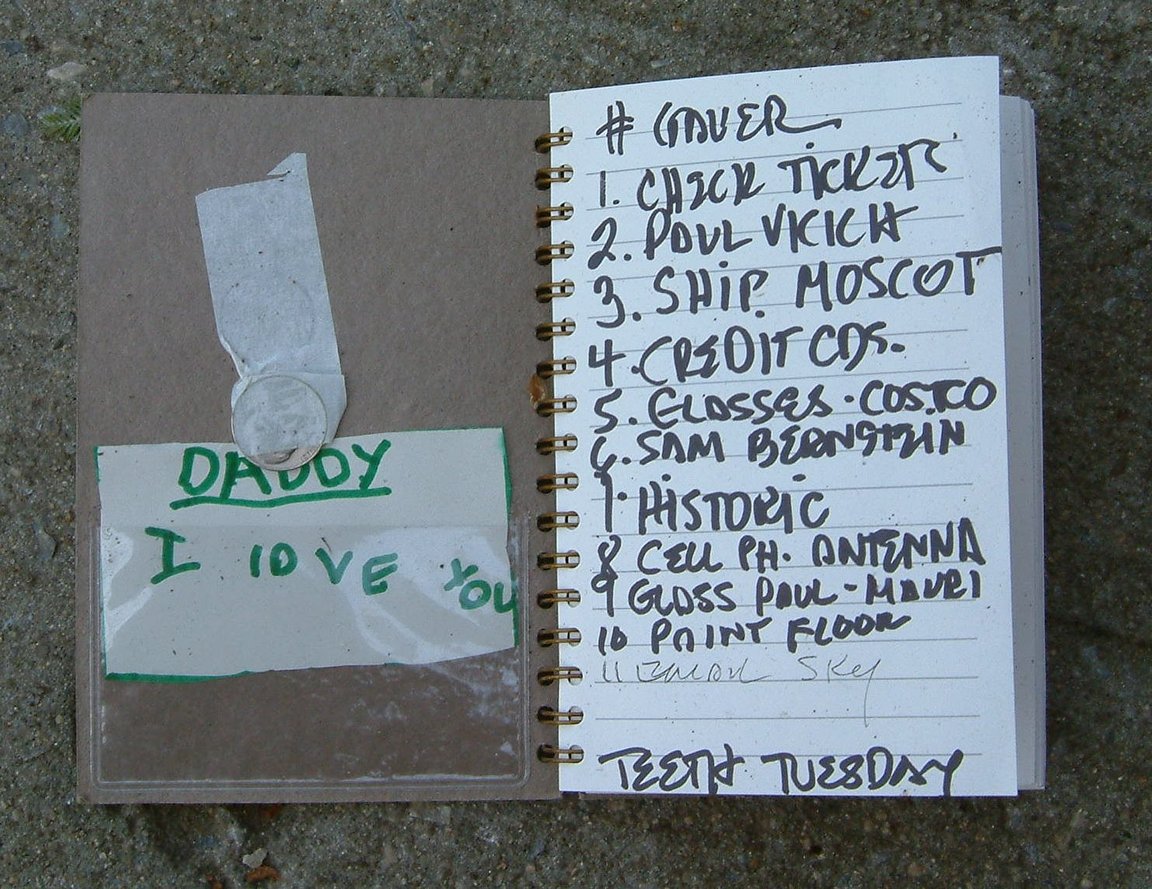 DADDY
I lOVE YOU
# GAVER
1. CHECK TICKET
2. PAUL VICICH
3. SHIP. MOSCOT
4. CREDIT CDS.
5. GLASSES - COSTCO
6. SAM BERNSTEIN
7. HISTORIC
8 CELL PH. ANTENNA
9 GLASS PAUL - MAURI
10 PAINT FLOOR
11 EMAIL SKY
TEETH TUESDAY